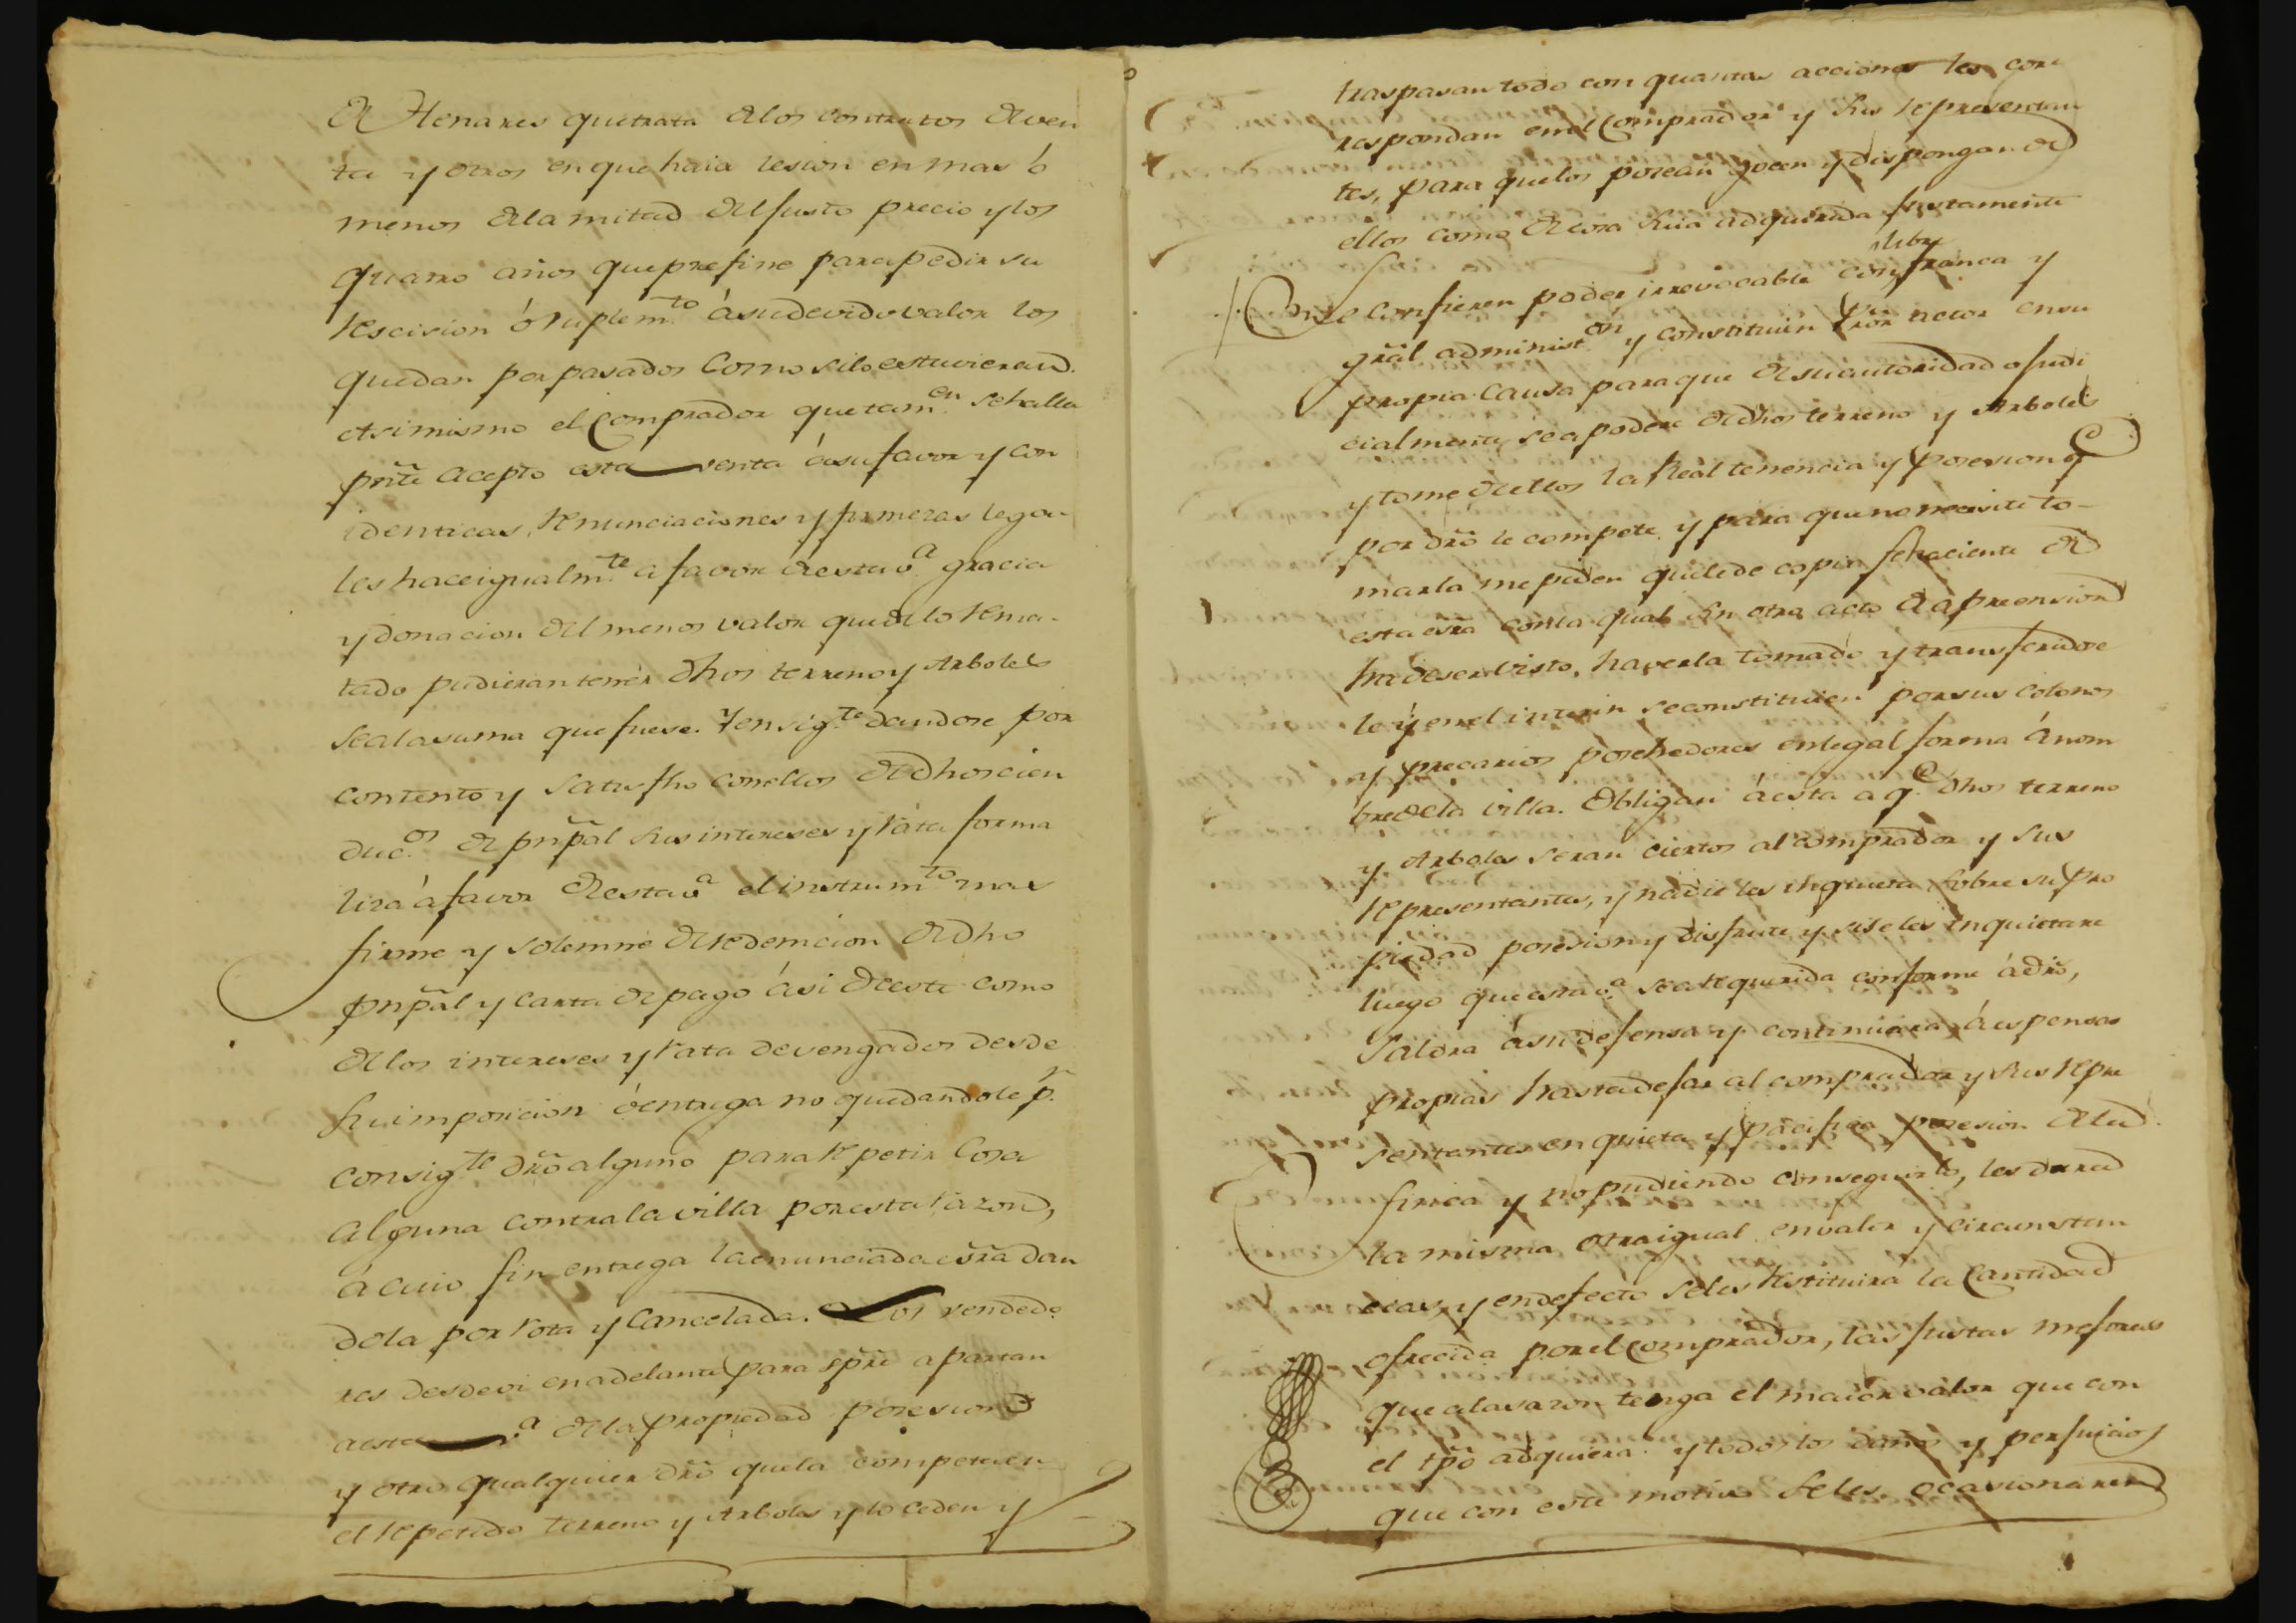 de Henares que trata de los contratos de ven
ta y otros en que haia lesion en mas ó
menos de la mitad del justo precio y los
quatro años que prefine para pedir su
rescision ó suplem.to á su devido valor los
quedan por pasados como si lo estuvieran.
Asimismo el Comprador que tam.en se halla
pñte acepto esta venta á su favor y con
identicas renunciaciones y firmezas lega-
les hace igualm.te a favor de esta v.a gracia
y donacion del menos valor que de lo rema-
tado pudieran tenér dhos terreno y Arboles
sea la suma que fuese. Y en sig.te dandose por
contento y satisfho con ellos de dhos cien
duc.os de pñpal sus intereses y rata forma
liza á favor de esta v.a el instrum.to mas
firme y solemne de redemcion de dho
pñpal y carta de pago ási de este como
de los intereses y rata devengados desde
su imposicion ó entrega no quedandole p.r
consig.te dřo alguno para repetir cosa
alguna contra la villa por esta razon,
á cuio fin entrega la enunciada esřa dan
dola por rota y Cancelada. Los vendedo
res desde oi en adelante para spře apartan
a esta v.a de la propiedad posesion
y otro qualquier dřo que la competa en
el repetido terreno y Arboles y lo ceden y
traspasan todo con quantas acciones les cor
respondan en el Comprador y sus representan
tes, para que los posean gocen y dispongan de
ellos como de cosa suia adquirida justamente
se confieren poder irrevocable con libre franca y
gřal administ.on y constituien Pror actor en su
propia causa para que de su autoridad o judi
cialmente se apodere de dhos terreno y Arboles
y tome de ellos la Real tenencia y posesion q.e
por dřo le compete, y para que no necesite to-
marla me piden que le de copia fehaciente de
esta esřa con la qual sin otro acto de apreension
ha de ser visto, haverla tomado y transferidose
le y en el interin se constituien por sus colonos
y precarios posehedores en legal forma á nom
bre de la villa. Obligan á esta a q.e dhos terreno
y Arboles seran ciertos al comprador y sus
representantes, y nadie les inquieta sobre su pro
piedad posesion y disfrute y si se les inquietare
luego que esta v.a sea requerida conforme á dřo,
saldra á su defensa y continúara á espensas
propias hasta dejar al comprador y sus repre
sentantes en quieta y pacifica posesion de la
finca y no pudiendo conseguirlo, les dara
la misma otra igual en valor y circunstan
cias, y en defecto se les restituirá la Cantidad
ofrecida por el Comprador, las justas mejoras
que a la sazon tenga el maior valor que con
el tpõ adquiera y todos los daños y perjuicios
que con este motivo se les ocasionaren